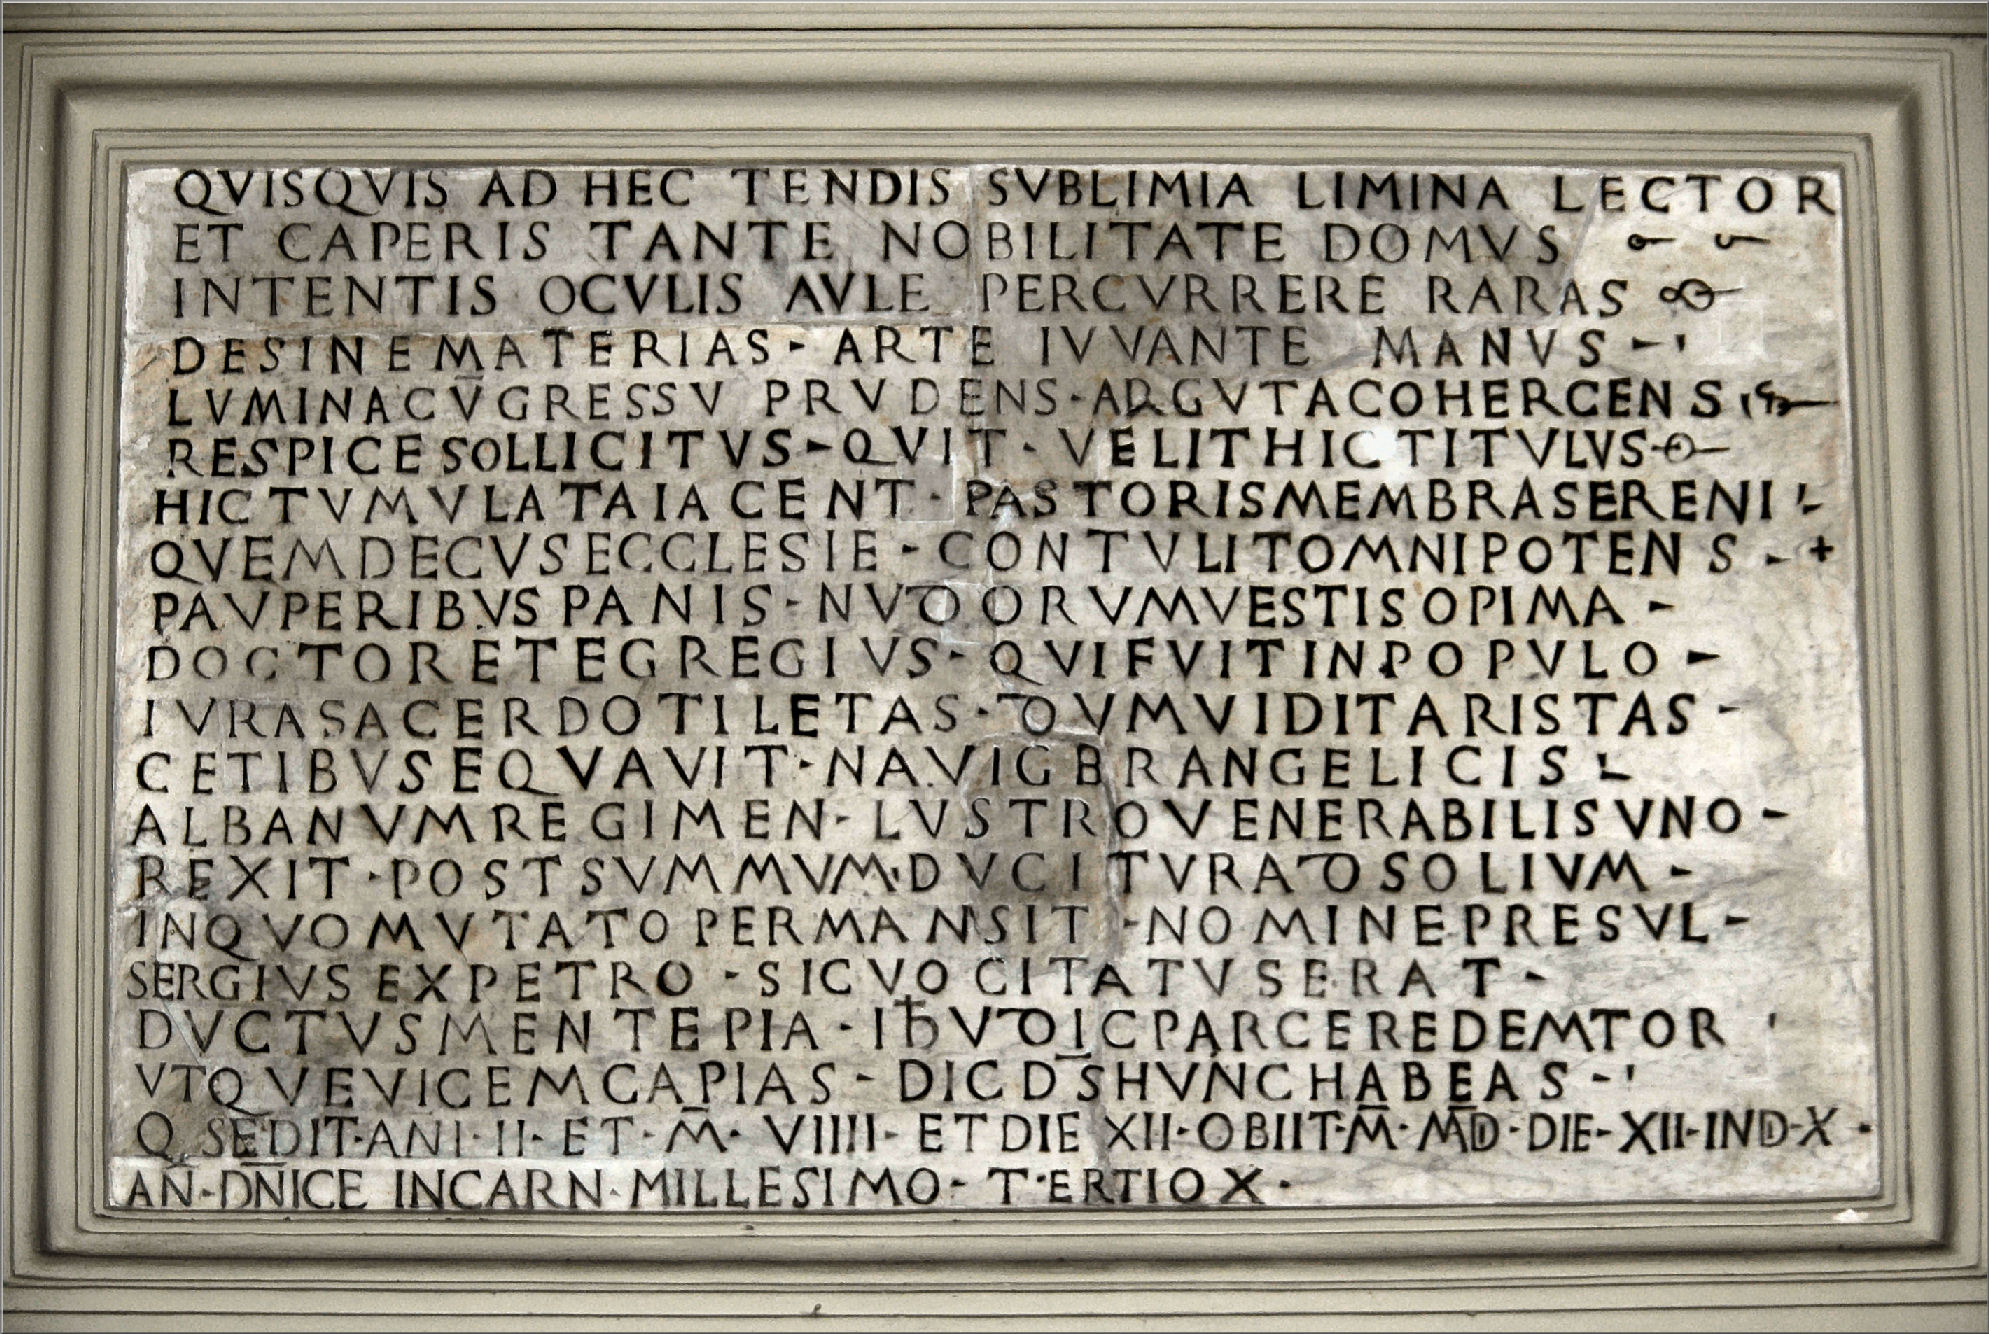 QVISQVIS AD HEC TENDIS SVBLIMIA LIMINA LECTOR
ET CAPERIS TANTE NOBILITATE DOMVS
INTENTIS OCVLIS AVLE PERCVRRERE RARAS
DESINE MATERIAS - ARTE IVVANTE MANVS -
LVMINA CV̅ GRESSV PRVDENS · ARGVTA COHERCENS
RESPICE SOLLICITVS - QVIT · VELIT HIC TITVLVS
HIC TVMVLATA IACENT · PASTORIS MEMBRA SERENI
QVEM DECVS ECCLESIE - CONTVLIT OMNIPOTENS - +
PAVPERIBVS PANIS - NVDORVM VESTIS OPIMA -
DOCTOR ET EGREGIVS - QVI FVIT IN POPVLO -
IVRA SACERDOTI LETAS · DVM VIDIT ARISTAS -
CETIBVS EQVAVIT · NAVIGBR ANGELICIS
ALBANVM REGIMEN - LVSTRO VENERABILIS VNO -
REXIT · POST SVMMVM · DVCITVR AD SOLIVM -
IN QVO MVTATO PERMANSIT - NOMINE PRESVL -
SERGIVS EX PETRO - SIC VOCITATVS ERAT -
DVCTVS MENTE PIA · IħV DIC PARCE REDEMTOR
VTQVE VICEM CAPIAS - DIC D̅S HVNC HABEAS -
Q SEDIT · ANI · II · ET · M̅ · VIIII · ET DIE XII · OBIIT · M̅ · MAD̅ · DIE - XII · IND · X ·
AN̅ - DN̅ICE INCARN · MILLESIMO - TERTIO X ·